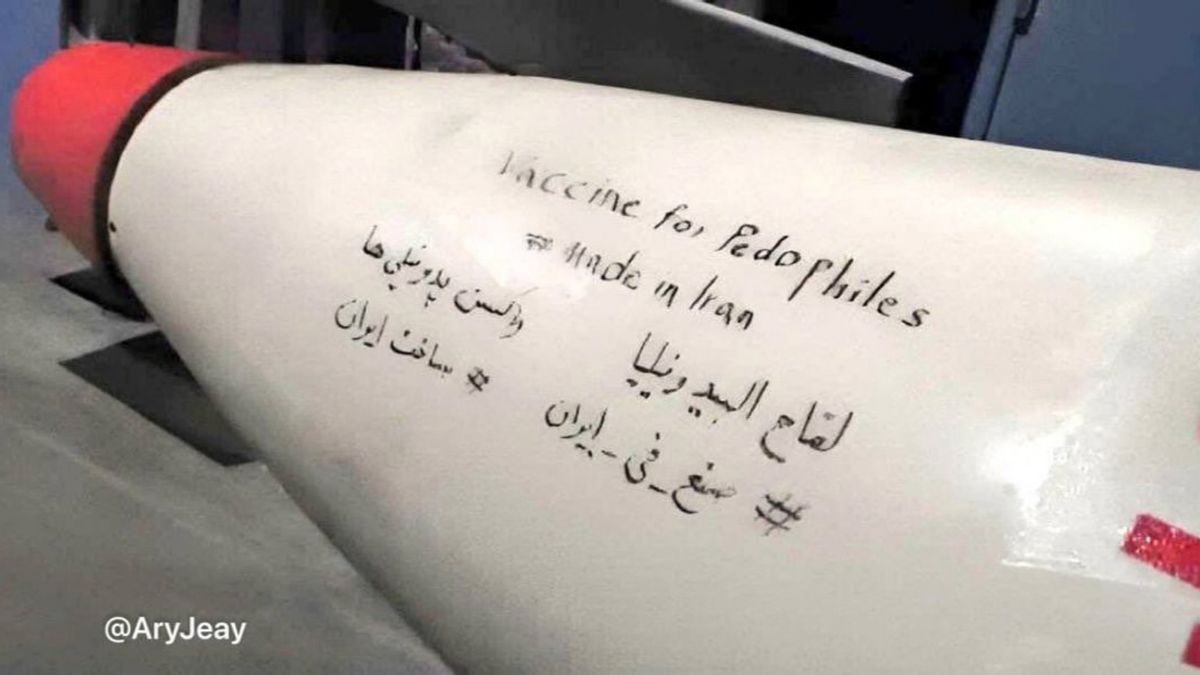 Vaccine for Pedophiles
# Made in Iran
واکسن پدوفیلی ها
# ساخت ایران
لقاح البيدوفيليا
# صنع_في_إيران
@AryJeay